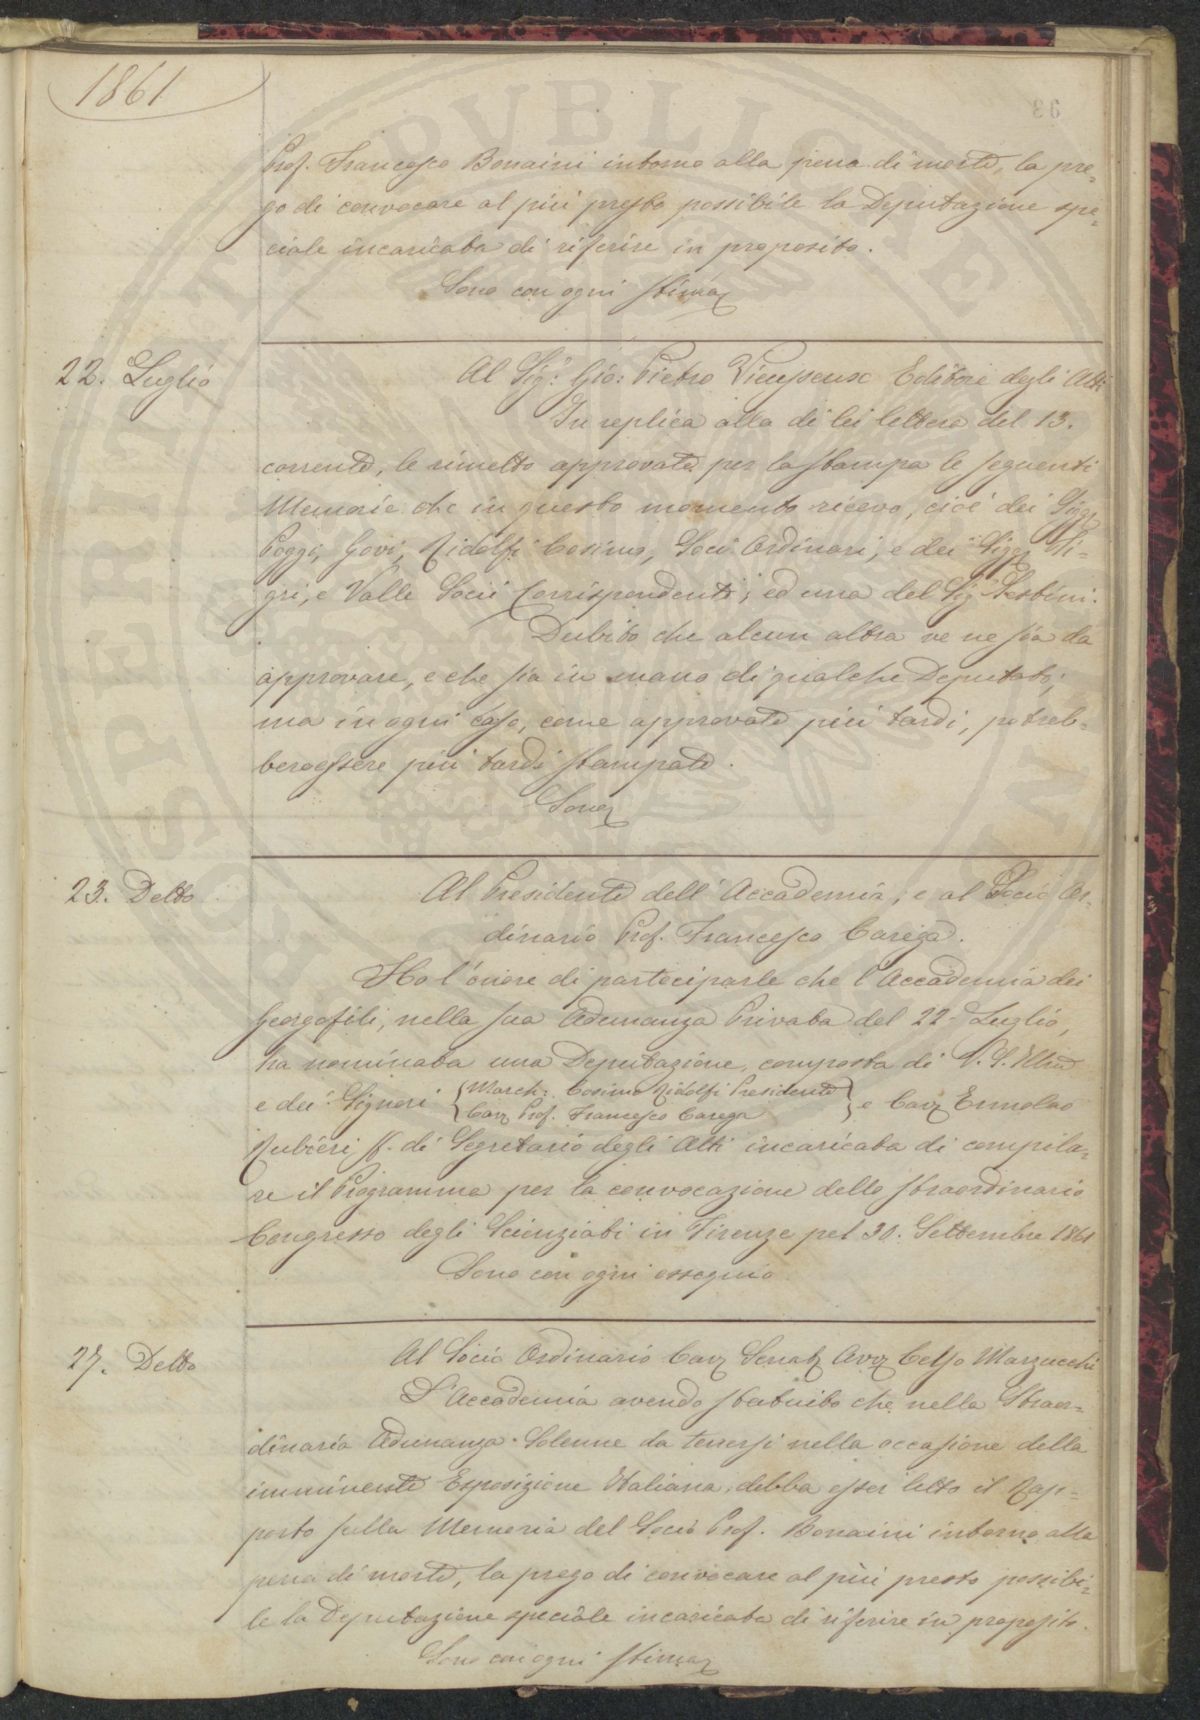 1861
Prof. Francesco Bonaini intorno alla pena di morte, la pre=
go di convocare al più presto possibile la Deputazione spe=
ciale incaricata di riferire in proposito.
Sono con ogni stima
22. Luglio
Al Sig: Gio: Pietro Vieusseux Editore degli Atti
In replica alla di lei lettera del 13.
corrente, le rimetto approvate per la stampa le seguenti
Memorie che in questo momento ricevo, cioè dei Sigg
Poggi, Govi, Ridolfi Cosimo, Soci Ordinari, e dei Sigg Ti=
gri, e Valle Socii Corrispondenti; ed una del Sig
Dubito che alcun altra ve ne sia da
approvare, e che sia in mano di qualche Deputato;
ma in ogni caso, come approvate più tardi, potreb=
bero essere più tardi stampate.
Sono
23. Detto
Al Presidente dell'Accademia, e al Socio Or=
dinario Prof. Francesco Carega.
Ho l'onore di parteciparle che l'Accademia dei
Georgofili, nella sua Adunanza Privata del 22 Luglio,
ha nominata una Deputazione, composta di V. S. Illma
e dei Signori {March: Cosimo Ridolfi Presidente
Cav Prof. Francesco Carega} e Cav Ermolao
Rubieri ff. di Segretario degli Atti incaricata di compila=
re il Programma per la convocazione dello straordinario
Congresso degli Scienziati in Firenze pel 30. Settembre 1861
Sono con ogni ossequio
27. Detto
Al Socio Ordinario Cav Senat Avv Celso Marzucchi
L'Accademia avendo statuito che nella Straor=
dinaria Adunanza Solenne da tenersi nella occasione della
imminente Esposizione Italiana, debba esser letto il Rap=
porto sulla Memoria del Socio Prof. Bonaini intorno alla
pena di morte, la prego di convocare al più presto possibi=
le la Deputazione speciale incaricata di riferire in proposito.
Sono con ogni stima